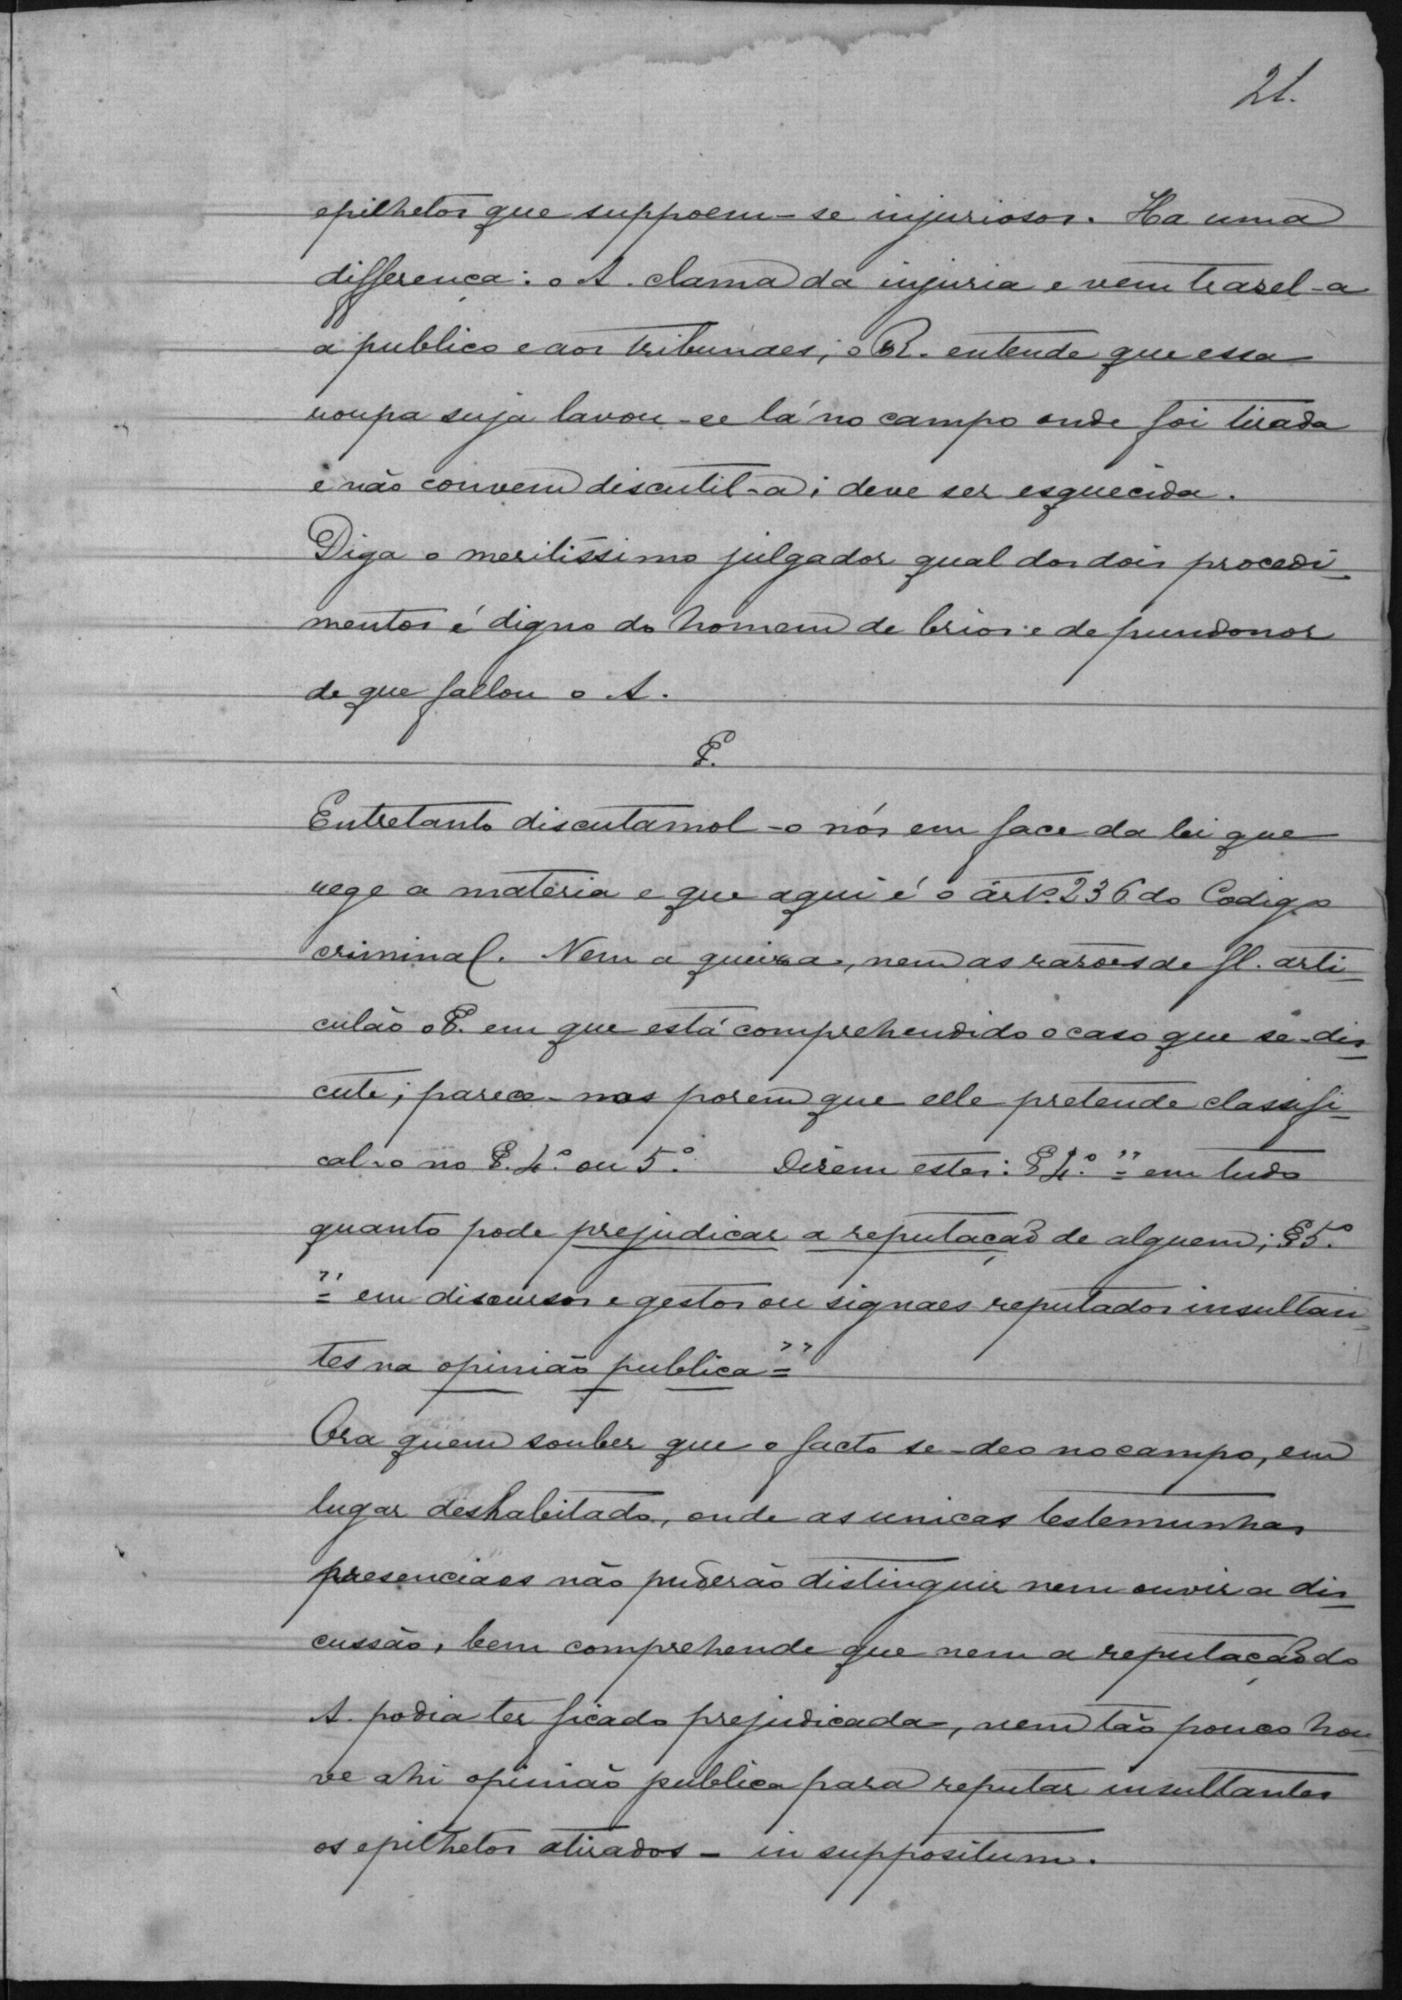 21.
epithetos que suppoem-se injuriosos. Ha uma
differença: o A. clama da injuria e vem trasel-a
a publico e aos tribunaes; o R. entende que essa
roupa suja lavou-se lá no campo onde foi tirada
e não convem discutil-a; deve ser esquecida.
Diga o meritissimo julgador qual dos dois procedi-
mentos é digno do homem de brios e de pundonor
de que fallou o A.
§.
Entretanto discutamol-o nós em face da lei que
rege a materia e que aqui é o artº. 236 do Codigo
criminal. Nem a queixa, nem as rasões de fl. arti-
culão o §. em que está comprehendido o caso que se-dis-
cute; parece-nos porem que elle pretende classifi-
cal-o no §. 4.º ou 5.º Disem estes: § 4.º "= em tudo
quanto pode prejudicar a reputação de alguem; § 5.º
"= em discursos e gestos ou signaes reputados insultan-
tes na opinião publica ="
Ora quem souber que o facto se-deo no campo, em
lugar deshabitado, onde as unicas testemunhas
presenciaes não puderão distinguir nem ouvir a dis-
cussão, bem comprehende que nem a reputação do
A. podia ter ficado prejudicada, nem tão pouco hou-
ve ahi opinião publica para reputar insultantes
os epithetos atirados - in suppositum.